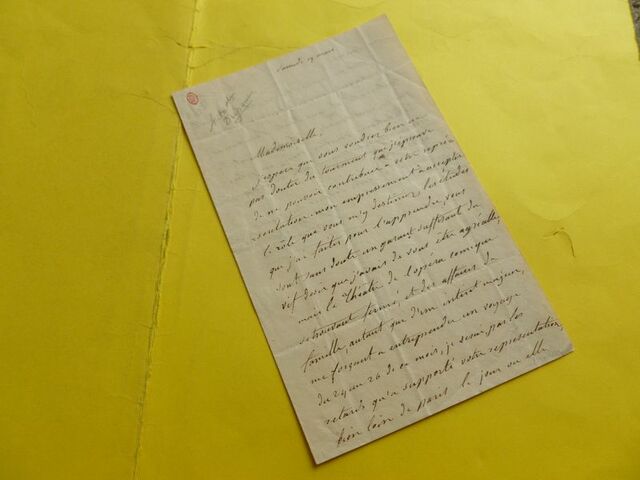 Samedi 19 mars
Mademoiselle,
J'espère que vous voudrez bien ne
pas douter du tourment que j'éprouve
de ne pouvoir contribuer à votre repré
sentation. mon empressement à accepter
le rôle que vous m'y destiniez, les études
que j'ai faites pour l'apprendre, vous
sont sans doute un garant suffisant du
vif désir que j'avais de vous être agréable;
mais le théâtre de l'opéra comique
se trouvant fermé, et des affaires de
famille, autant que d'un intérêt majeur,
me forçant à entreprendre un voyage
du 24 au 26 de ce mois, je serai par les
retards qu'a supporté votre représentation,
bien loin de paris le jour où elle